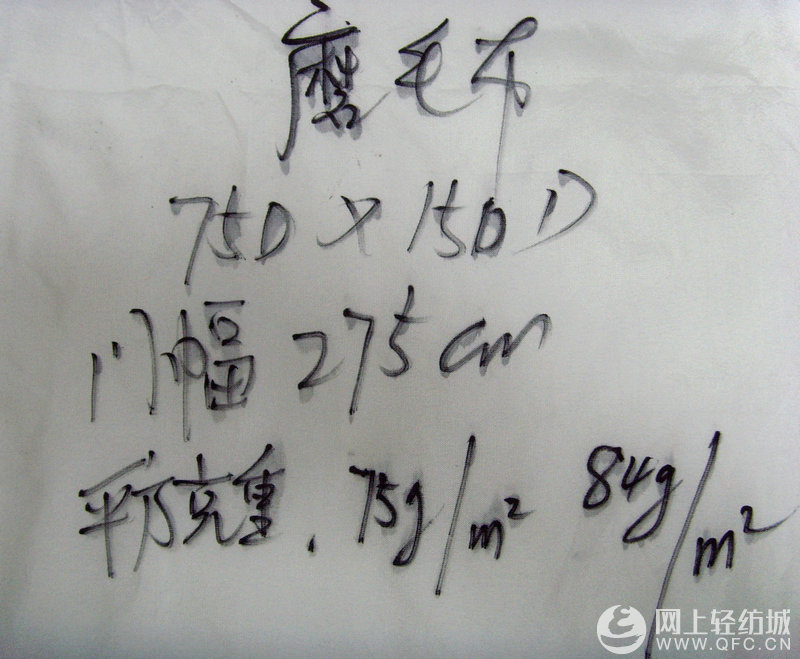 磨毛布
75D X 150D
门幅 275cm
平方克重. 75g/m² 84g/m²
网上轻纺城
WWW.QFC.CN